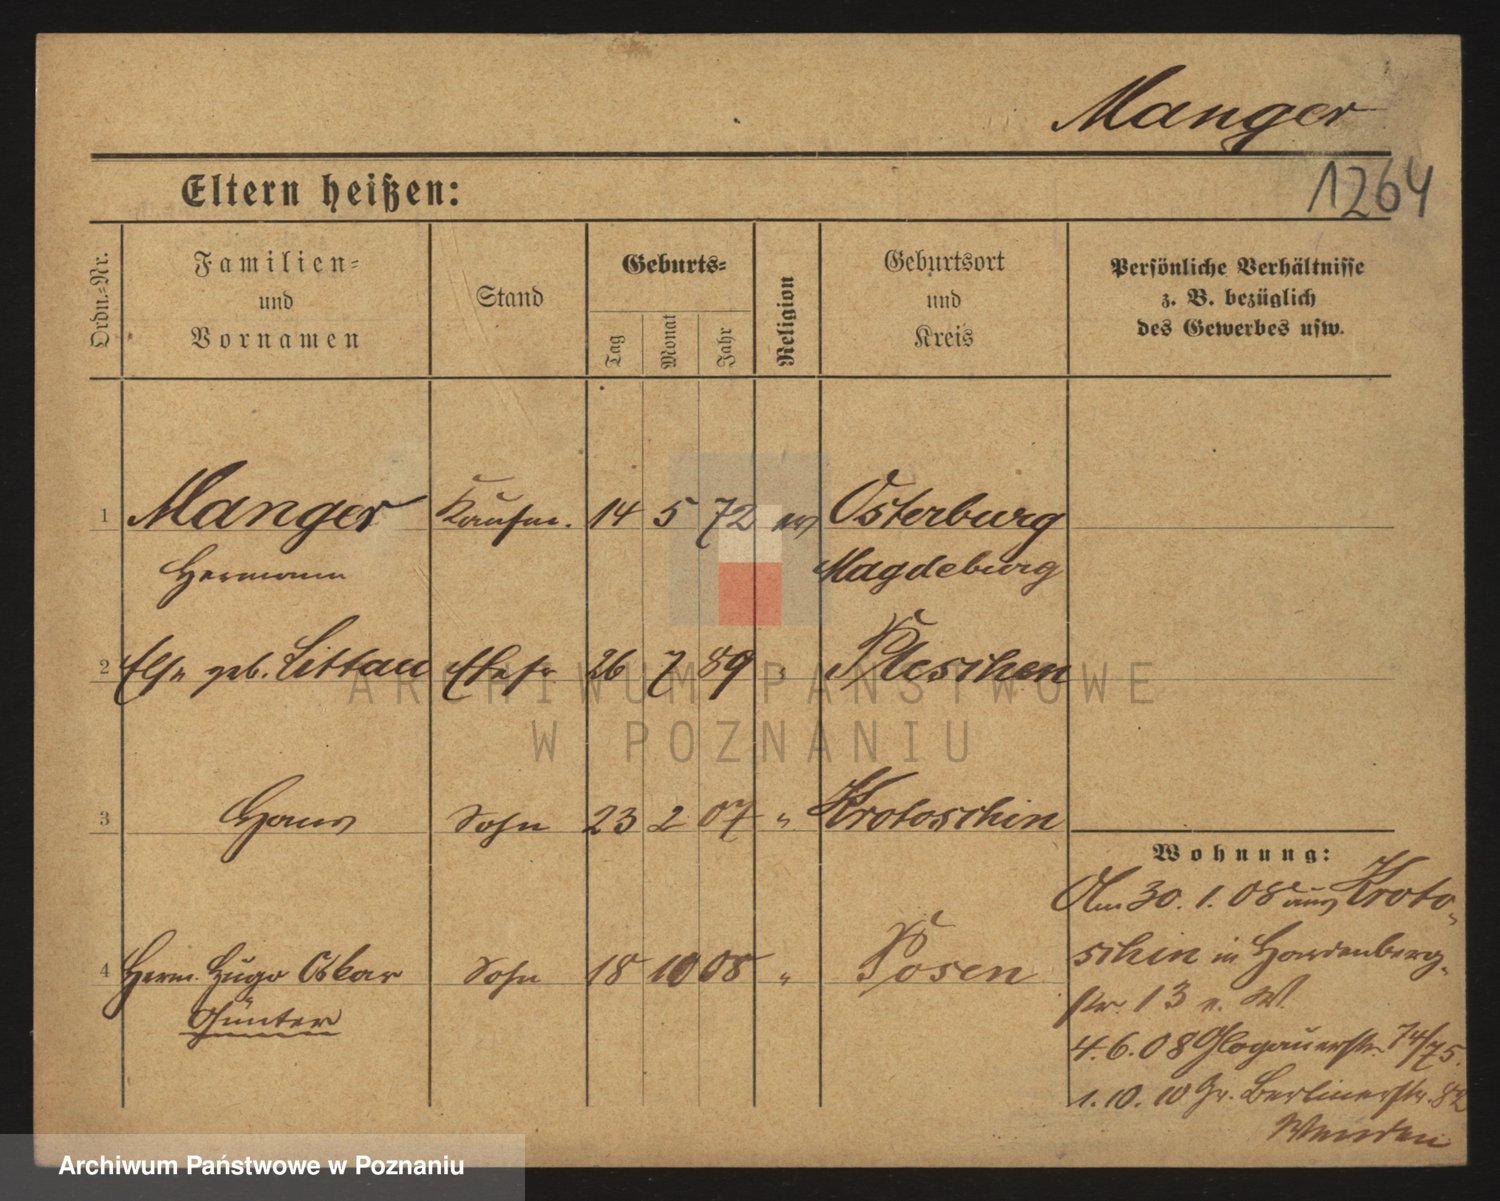 Manger
1264
Eltern heißen:
Ordn.-Nr.
Familien-
und
Vornamen
Stand
Geburts-
Tag
Monat
Jahr
Religion
Geburtsort
und
Kreis
Persönliche Verhältnisse
z. B. bezüglich
des Gewerbes usw.
1 Manger Kaufm. 14 5 72 ev Osterburg
Hermann Magdeburg
2 geb. Littau Ehefr 26 7 89 " Pleschen
3 Hans Sohn 23 2 07 " Krotoschin
Wohnung:
Am 30. 1. 08 aus Kroto-
schin in Hardenberg-
str. 13 e. W.
4 Herm. Hugo Oskar Sohn 18 10 08 " Posen
Günter
4. 6. 08 Glogauerstr. 74/75.
1. 10. 10 Gr. Berlinerstr. 82
ARCHIWUM PAŃSTWOWE
W POZNANIU
Archiwum Państwowe w Poznaniu